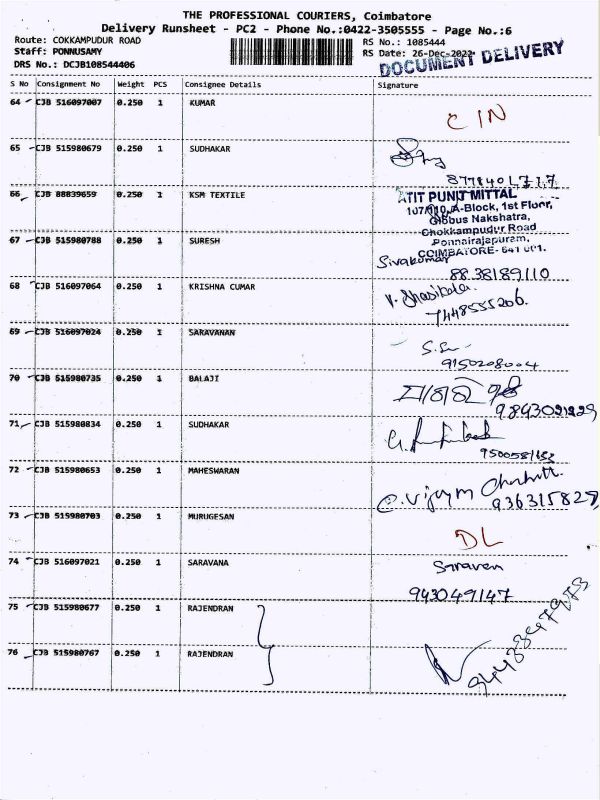 THE PROFESSIONAL COURIERS, Coimbatore
Delivery Runsheet - PC2 - Phone No.:0422-3505555 - Page No.:6
Route: COKKAMPUDUR ROAD
Staff: PONNUSAMY
DRS No.: DCJB108544406
RS No.: 1085444
RS Date: 26-Dec-2022
DOCUMENT DELIVERY
S No Consignment No Weight PCS Consignee Details Signature
64 CJB 516097007 0.250 1 KUMAR
C IN
65 CJB 515980679 0.250 1 SUDHAKAR
66 CJB 88839659 0.250 1 KSM TEXTILE
ATIT PUNIT MITTAL
107/110, A-Block, 1st Floor,
Globus Nakshatra,
Chokkampudur Road
Ponnairajapuram,
COIMBATORE- 641 001.
67 CJB 515980788 0.250 1 SURESH
Sivakumar
8838189110
68 CJB 516097064 0.250 1 KRISHNA CUMAR
V. Shasikala.
7448555206.
69 CJB 516097024 0.250 1 SARAVANAN
9150208004
70 CJB 515980735 0.250 1 BALAJI
71 CJB 515980834 0.250 1 SUDHAKAR
72 CJB 515980653 0.250 1 MAHESWARAN
936315829
73 CJB 515980703 0.250 1 MURUGESAN
DL
74 CJB 516097021 0.250 1 SARAVANA
Saravan
943049147
75 CJB 515980677 0.250 1 RAJENDRAN
76 CJB 515980767 0.250 1 RAJENDRAN